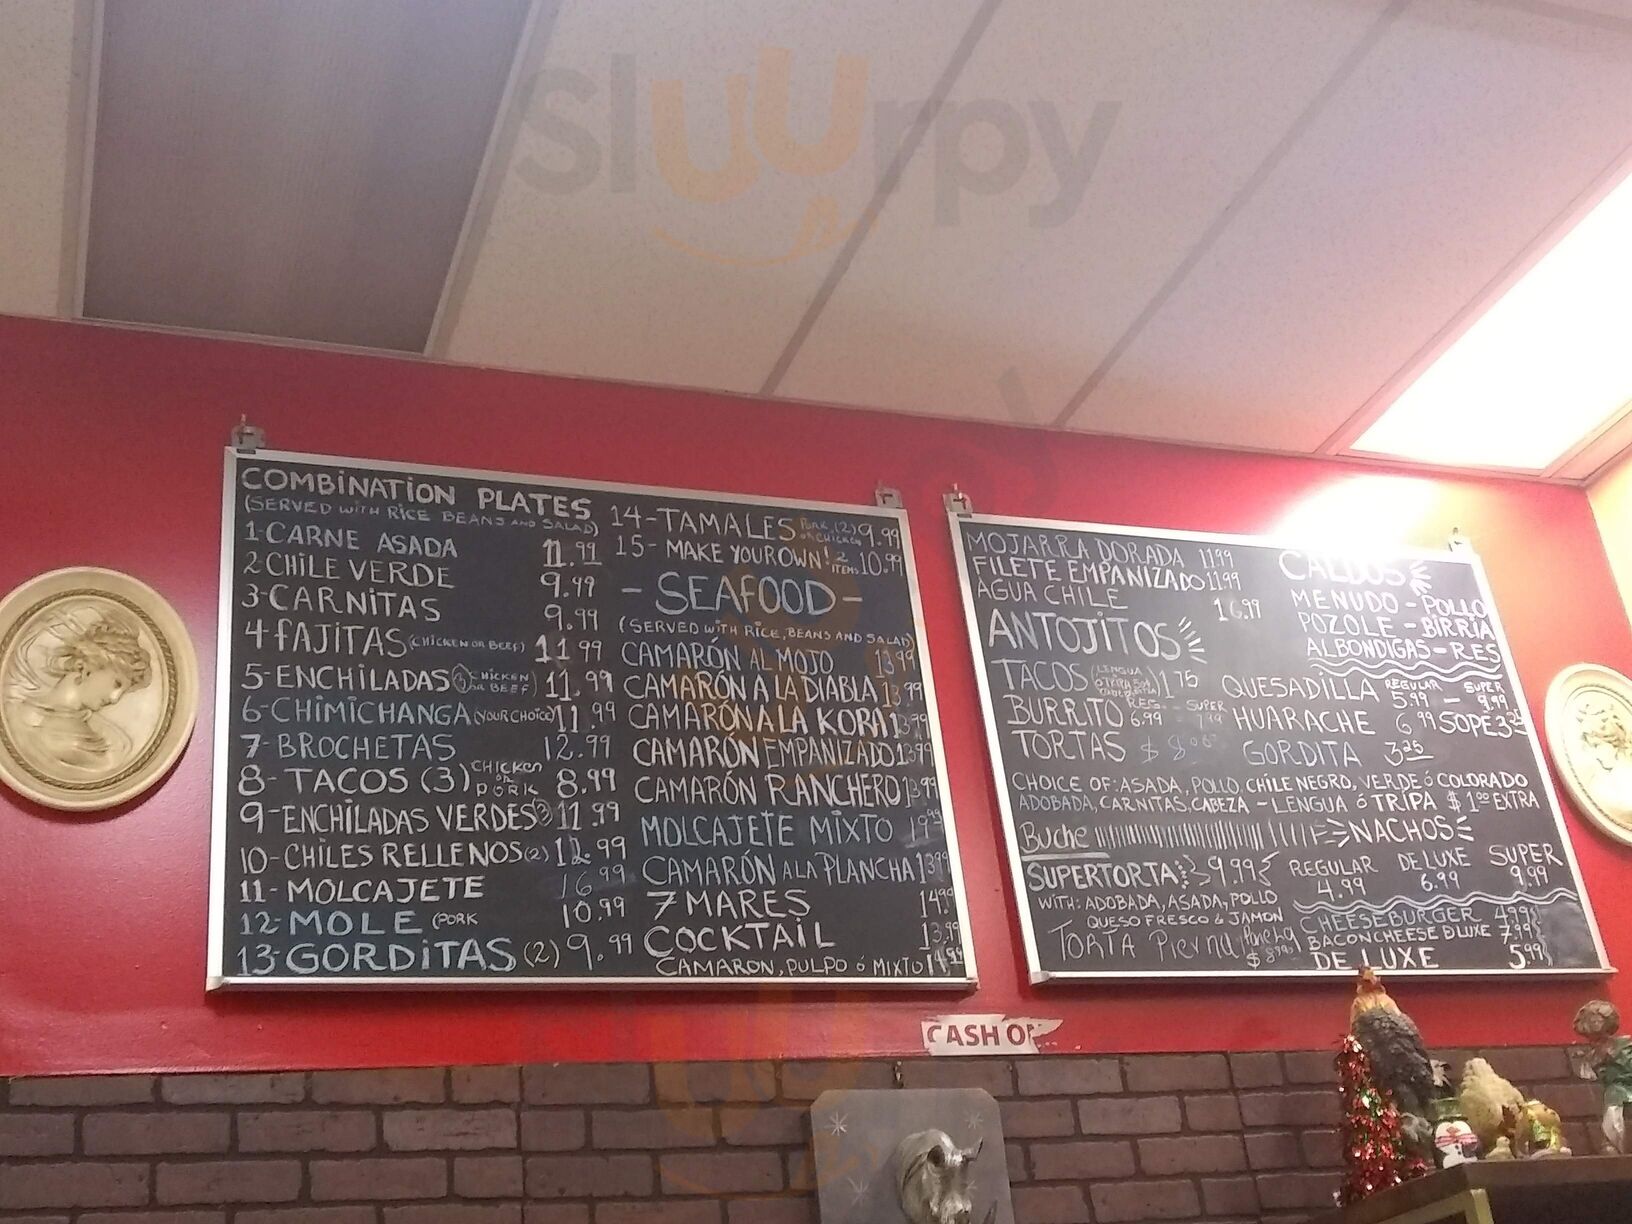 Sluurpy
COMBINATION PLATES
(SERVED WITH RICE BEANS AND SALAD)
1-CARNE ASADA 11.99
2-CHILE VERDE 9.99
3-CARNITAS 9.99
4 FAJITAS (CHICKEN OR BEEF) 11.99
5-ENCHILADAS CHICKEN OR BEEF) 11.99
6-CHIMICHANGA (YOUR CHOICE) 11.99
7-BROCHETAS 12.99
8-TACOS (3) CHICKEN OR PORK 8.99
9-ENCHILADAS VERDES 11.99
10-CHILES RELLENOS (2) 12.99
11-MOLCAJETE 16.99
12-MOLE (PORK 10.99
13-GORDITAS (2) 9.99
14-TAMALES PORK (2) OR CHICKEN 9.99
15-MAKE YOUR OWN! 2 ITEMS 10.99
-SEAFOOD-
(SERVED WITH RICE, BEANS AND SALAD)
CAMARÓN AL MOJO 13.99
CAMARÓN A LA DIABLA 13.99
CAMARÓN A LA KORA 13.99
CAMARÓN EMPANIZADO 13.99
CAMARÓN RANCHERO 13.99
MOLCAJETE MIXTO 19.99
CAMARÓN A LA PLANCHA 13.99
7 MARES 14.99
COCKTAIL 13.99
CAMARON, PULPO ó MIXTO 14.99
MOJARRA DORADA 11.99
FILETE EMPANIZADO 11.99
AGUA CHILE 16.99
ANTOJITOS
TACOS (LENGUA 1.75
BURRITO REG. 6.99 - SUPER 7.99
TORTAS $8.00
CALDOS
MENUDO - POLLO
POZOLE - BIRRIA
ALBONDIGAS - RES
QUESADILLA REGULAR 5.99 - SUPER 9.99
HUARACHE 6.99 SOPE 3.25
GORDITA 3.25
CHOICE OF: ASADA, POLLO, CHILE NEGRO, VERDE ó COLORADO
ADOBADA, CARNITAS, CABEZA - LENGUA ó TRIPA $1.00 EXTRA
Buche
NACHOS
REGULAR DELUXE SUPER
4.99 6.99 9.99
SUPERTORTA: 9.99
WITH: ADOBADA, ASADA, POLLO
QUESO FRESCO & JAMON
TORTA Pierna
CHEESEBURGER 4.99
BACONCHEESE DLUXE 7.99
DE LUXE 5.99
CASH